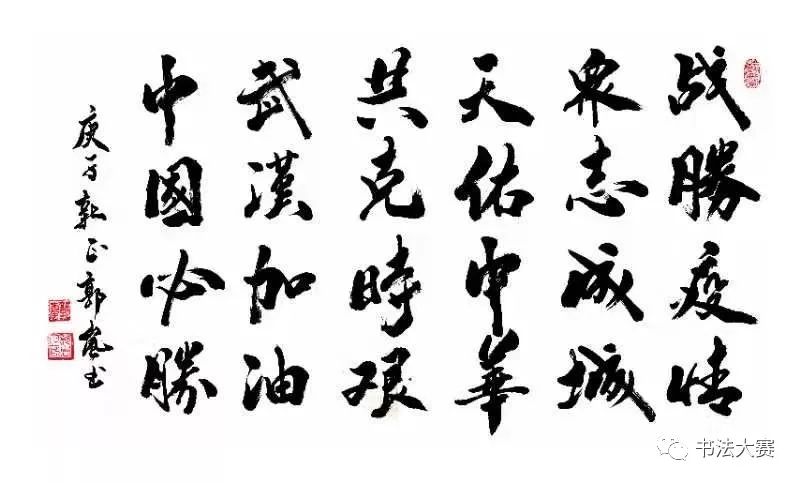 战勝疫情
眾志成城
天佑中華
共克時艰
武漢加油
中國必勝
庚子新正郭嵐书
书法大赛